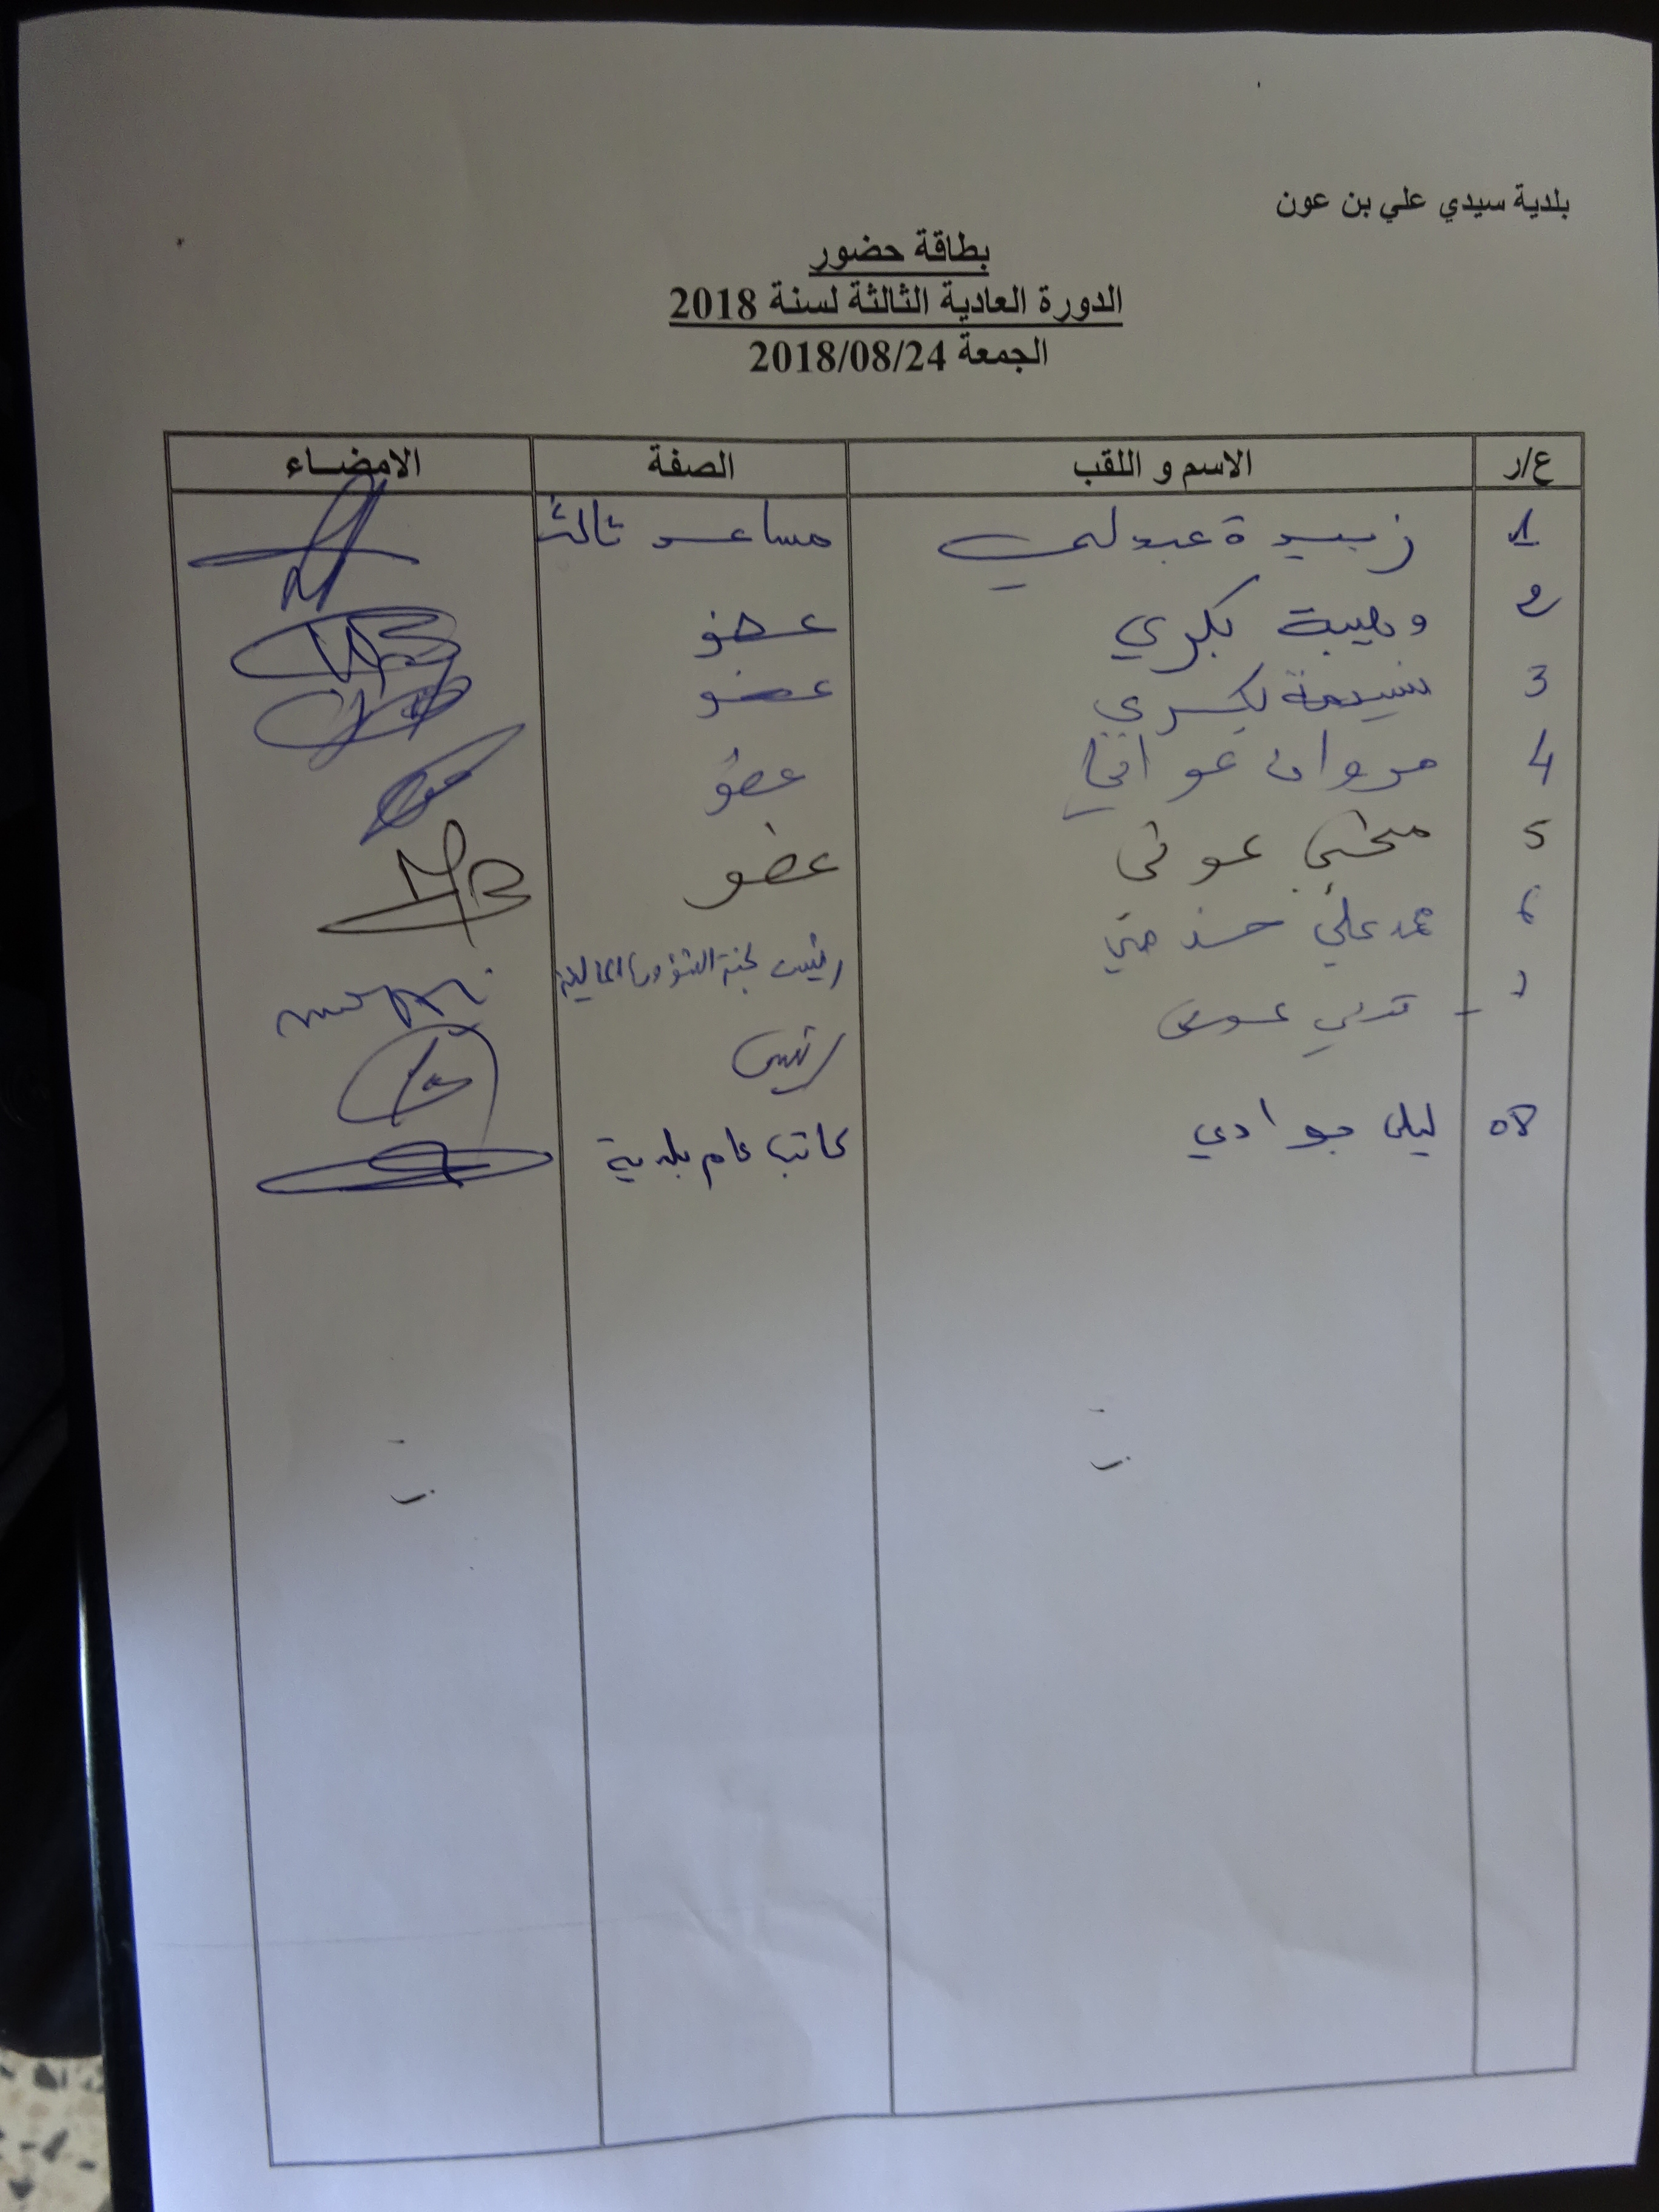 بلدية سيدي علي بن عون
بطاقة حضور
الدورة العادية الثالثة لسنة 2018
الجمعة 2018/08/24
ع/ر الاسم و اللقب الصفة الامضاء
1 زبيدة عبدلي مساعد ثالث
2 وهيبة بكري عضو
3 نسيمة بكري عضو
4 مروان عوافي عضو
5 عوني عضو
6 محمد علي رئيس لجنة الشؤون المالية
7 رئيس
08 ليلى جوادي كاتب عام بلدية